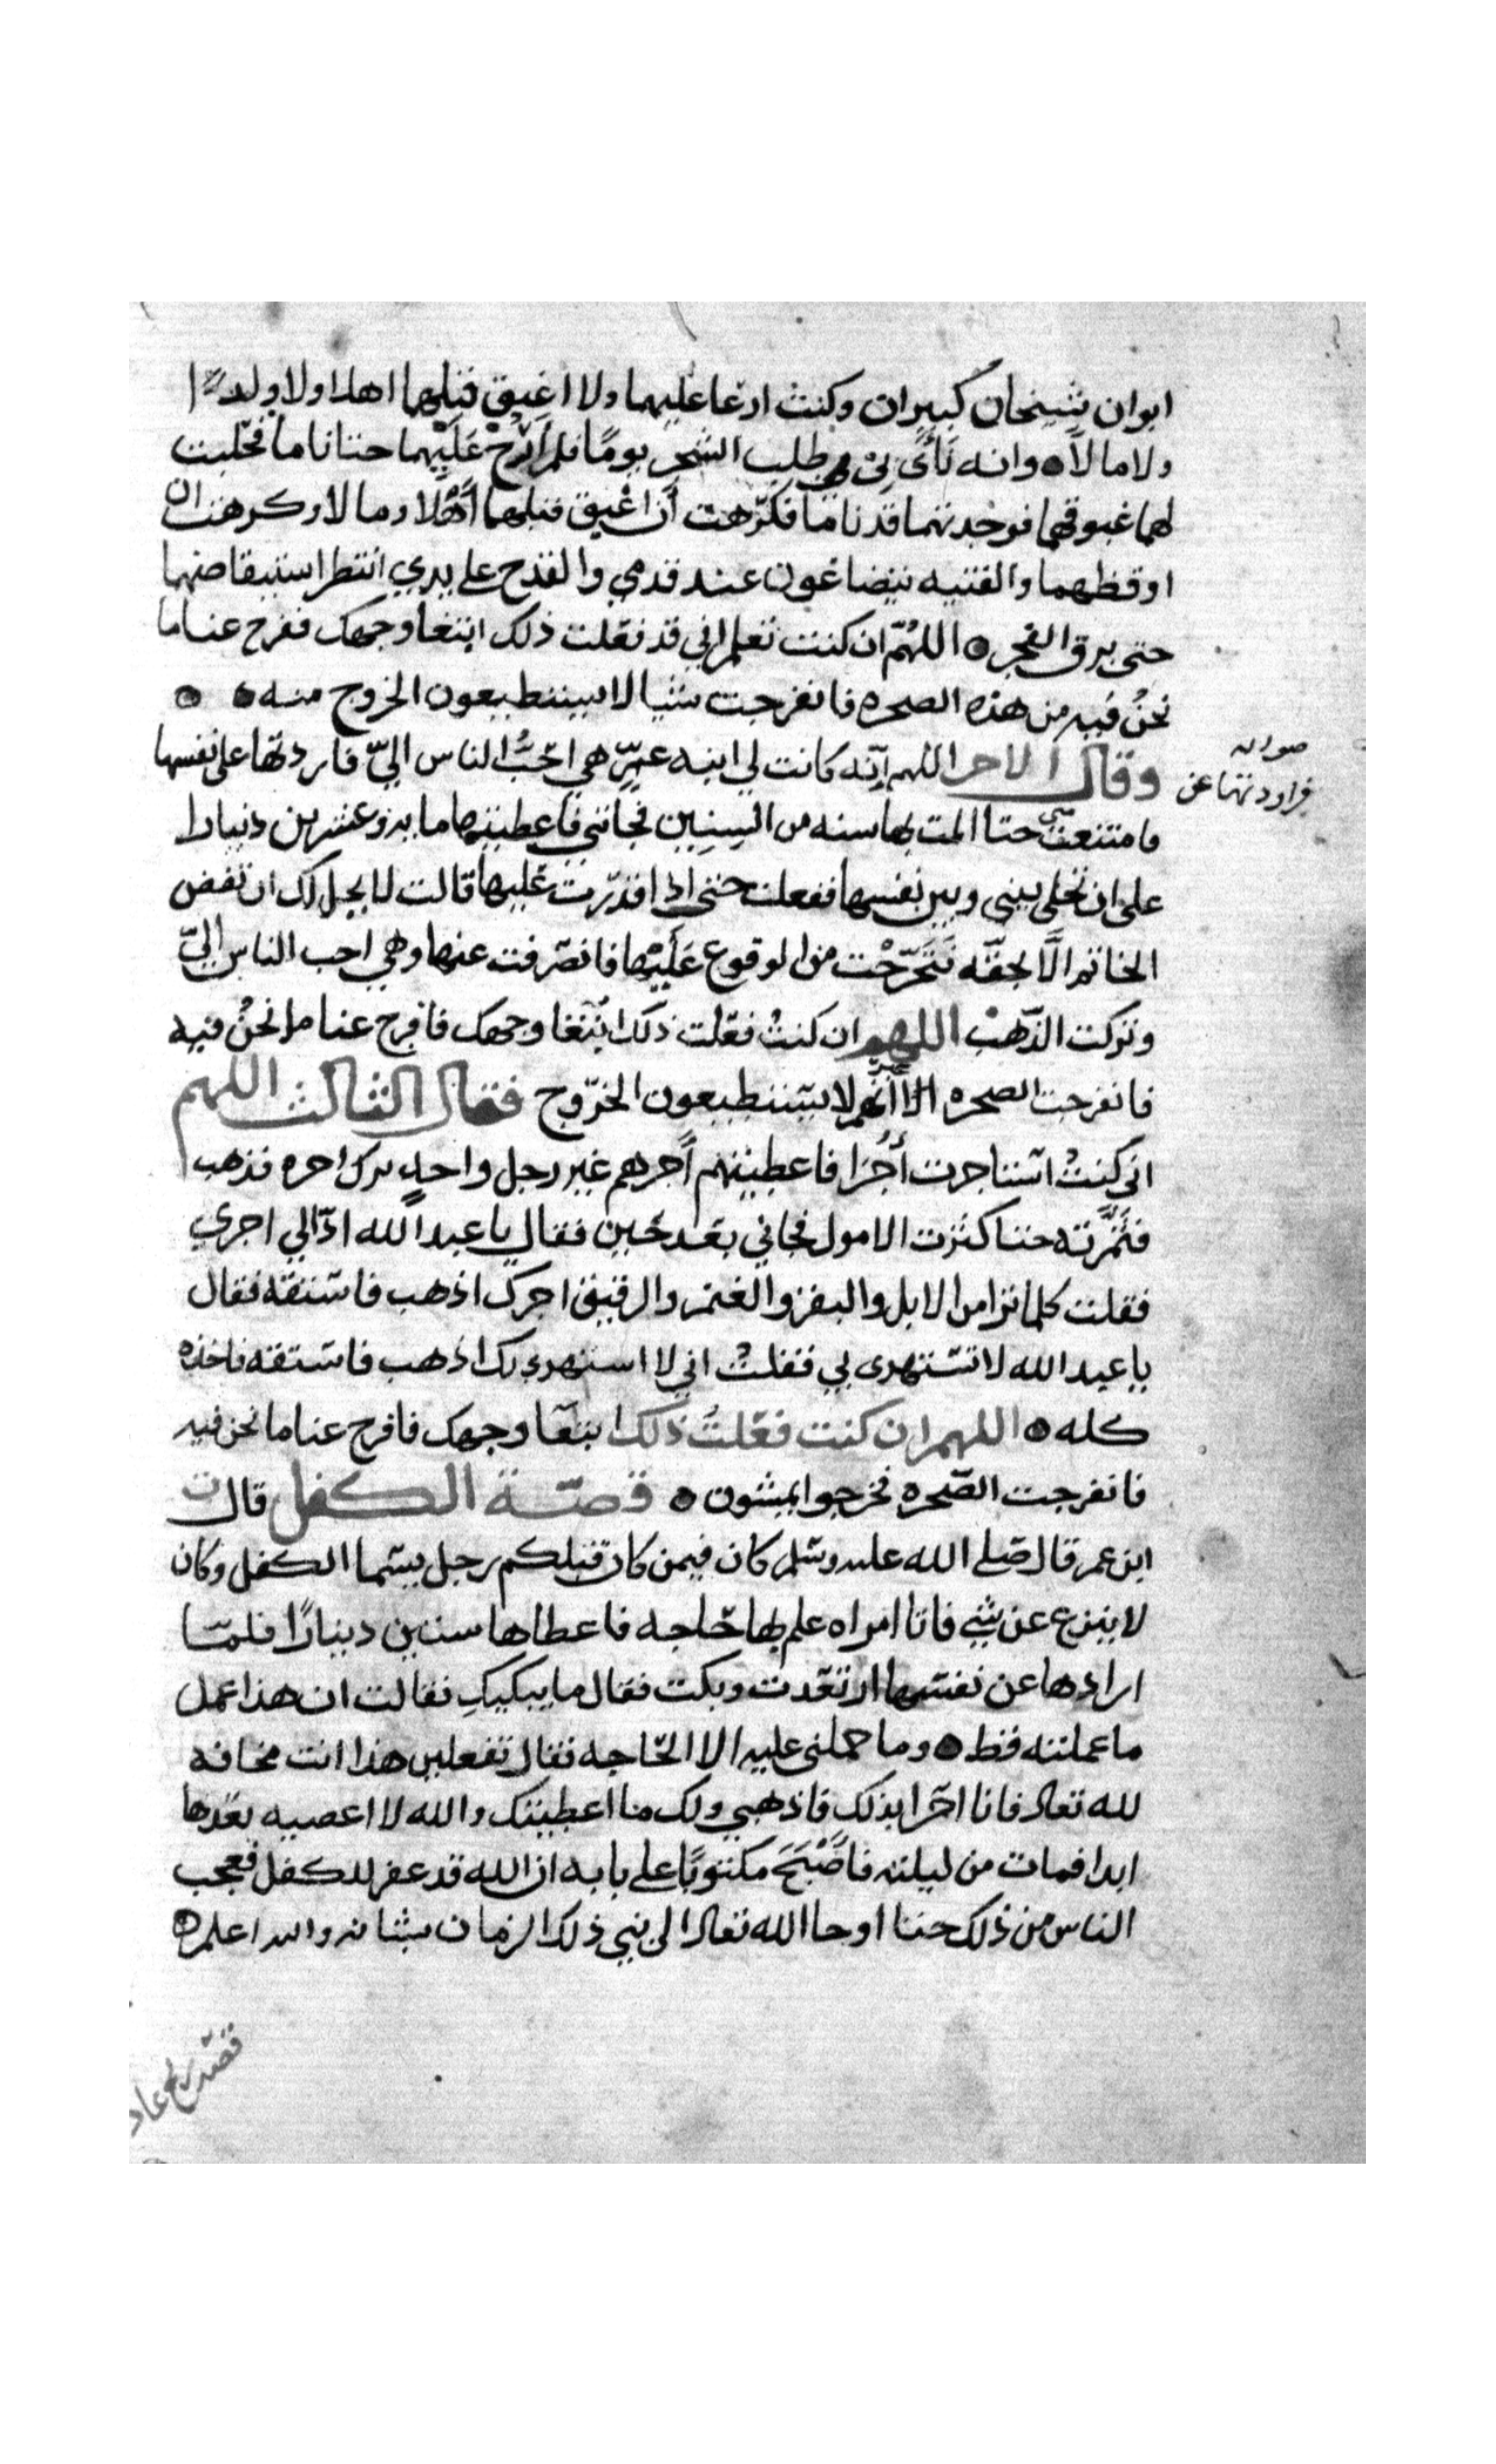 ابوان شيخان كبيران وكنت ادعا عليهما ولا اغبق قبلهما اهلا ولا ولدًا
ولا مالاً ه وانه نَأَى بِيْ طلب الشجر يومًا فلم اَرُحْ عَلَيْهما حتا ناما فحلبت
لهما غبوقهما فوجدتهما قد ناما فكرّهت أن اغبق قبلهما أهْلا ومالا وكرهت ان
اوقظهما والفتيه يتضاغون عند قدمي والقدح على يدي انتظر استيقاضهما
حتى برق الفجر ه اللهُمّ ان كنت تعلم اني قد فعلت ذلك ابتغا وجهك ففرج عنا ما
نحنُ فيه من هذه الصخره فانفرجت شيا لا يستطيعون الخروج منه ه ه
وقال الاخر اللهم اِنّه كانت لي ابنه عمٍّ هي احَبُّ الناس اليّ فاردتها على نفسها
صوابه
فراودتها عن
فامتنعت مني حتا المت بها سنه من السنِين فجاتني فاعطيتها مايه وعشرين دينارا
على ان تخلي بيني وبين نفسها ففعلت حتى اذا قدرت عليها قالت لا يحل لك ان تفض
الخاتم الَّا بحقّه فتَحَرّجْت من الوقوع عَلَيْها فانصرفت عنها وهي احب الناس اليّ
وتركت الذّهبْ اللهم ان كنتُ فعلت ذلك ابْتغا وجهك فافرج عنا ما نحنُ فيه
فانفرجت الصخره الا أنَّهم لا يستطيعون الخرّوج فقال الثالث اللهم
اني كنتُ استاجرت أُجُرَا فاعطيتهم أجرهم غير رجل واحدٍ ترك اجره فذهب
فثمَّرته حتا كثرت الامول فجاني بعد حَين فقال يا عبد الله ادّا لي اجري
فقلت كلما ترا من الابل والبقر والغنم والرقيق اجرك اذهب فاستقه فقال
يا عبد الله لا تستهزى بي فقلتُ اني لا استهزي بك اذهب فاستقه فاخذه
كله ه اللهم ان كنت فعلتُ ذلك ابتغا وجهك فافرج عنا ما نحن فيه
فانفرجت الصّخره فخرجوا يمشون ه قصّة الكفل قال
ابن عمر قال صلى الله عليه وسلم كان فيمن كان قبلكم رجل يسّما الكفل وكان
لا ينزع عن شي فاتا امراه علم بها حَاجه فاعطاها ستين دينارًا فلمّا
ارادها عن نفسها ارتعدت وبكت فقال ما يبكيكِ فقالت ان هذا عمل
ما عملته قط ه وما حملني عليه الا الحّاجه فقال تفعلين هذا انت مخافه
لله تعالى فانا احّرا بذلك فاذهبي ولك ما اعطيتك والله لا اعصيه بعدها
ابدا فمات من ليلته فاصْبَحَ مكتوبًا على بابه ان الله قد غفر للكفل فعجب
الناس من ذلك حتا اوحا الله تعالا الى نبي ذلك الزمان بشانه والله اعلم ه
قصّه ريح عاد